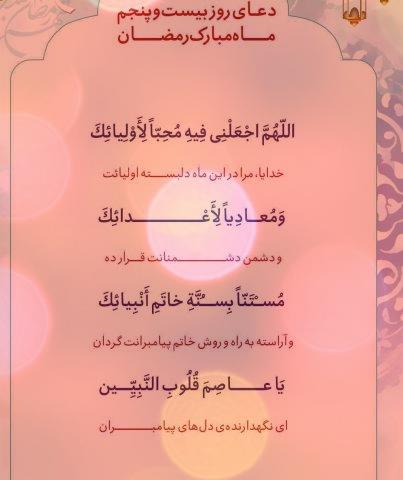 دعای روز بیست و پنجم
مـــاه مبارک رمضـــان
اللّهُمَّ اجْعَلْنِی فِیهِ مُحِبّاً لِأَوْلِیائِكَ
خدایا، مرا در این ماه دلبســـته اولیائت
وَمُعـادِیاً لِأَعْـــــــدائِكَ
و دشمن دشـــــمنانت قـرار ده
مُسـْتَنّاً بِســُنَّةِ خاتَمِ أَنْبِیائِكَ
و آراسته به راه و روش خاتم پیامبرانت گردان
یَا عـــاصِمَ قُلُوبِ النَّبِیِّـــین
ای نگهدارنده‌ی دل‌های پیامبـــــران